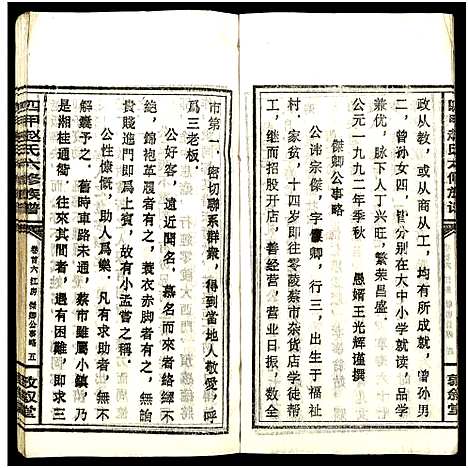 政从教，或从商从工，均有所成就，曾孙男
二，曾孙女四，皆分别在大中小学就读，品学
兼优，脉下人丁兴旺，繁荣昌盛。
公元一九九二年季秋　愚婿王光辉谨撰
傑卿公事略
公讳宗傑，字傑卿，行三，出生于福祉
村，家贫，十四岁即往零陵蔡市杂货店学徒
，继而招股开店，善经营，营业日振，数全
市第一，密切聯系群衆，得到當地人敬爱，呼
爲三老板。
公好客，遠近聞名，慕名而來者絡繹不
絶，錦袍英履者有之，蓑衣赤脚者有之，無論
貴賤進門即爲上賓，故有小孟嘗之稱。
公性慷慨，助人爲樂，凡有求助者，無不
解囊予之。舊時車路未通，蔡市雖屬小鎮，乃
是湘桂通衢，往來其間者，遇困難，即求三
四甲赵氏六修族譜
卷首六江房　傑卿公事略　五
敦叙堂